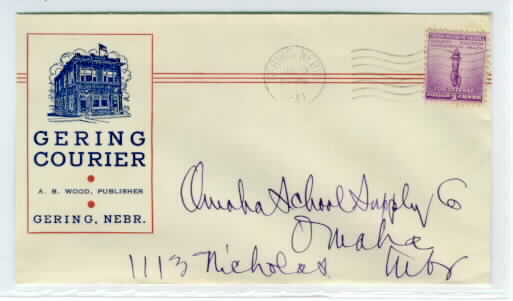 GERING
COURIER
A. B. WOOD, PUBLISHER
GERING, NEBR.
Omaha School Supply Co
Omaha
1113 Nicholas Nebr